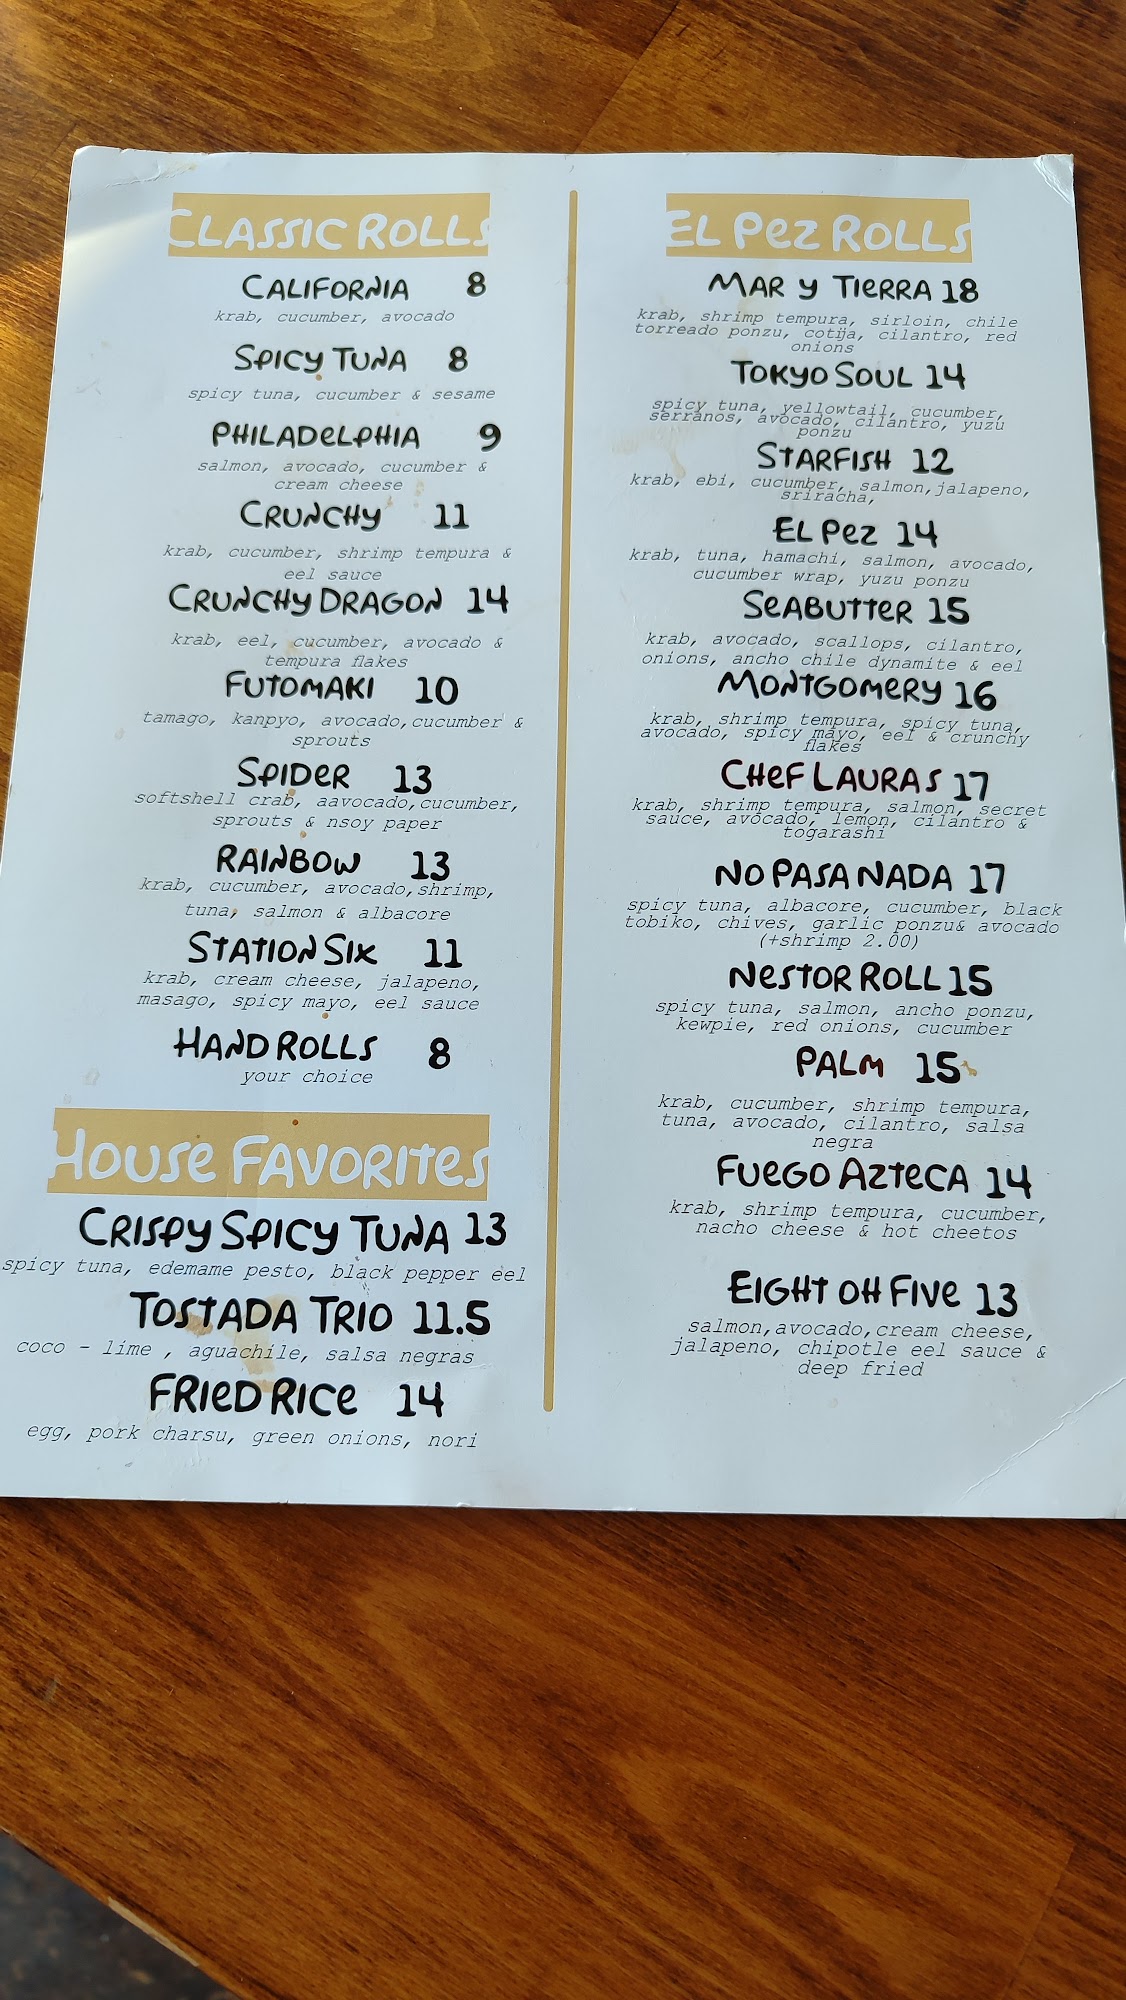 CLASSIC ROLLS
CALIFORNIA 8
krab, cucumber, avocado
SPICY TUNA 8
spicy tuna, cucumber & sesame
PHILADELPHIA 9
salmon, avocado, cucumber &
cream cheese
CRUNCHY 11
krab, cucumber, shrimp tempura &
eel sauce
CRUNCHY DRAGON 14
krab, eel, cucumber, avocado &
tempura flakes
FUTOMAKI 10
tamago, kanpyo, avocado, cucumber &
sprouts
SPIDER 13
softshell crab, aavocado, cucumber,
sprouts & nsoy paper
RAINBOW 13
krab, cucumber, avocado, shrimp,
tuna, salmon & albacore
STATION SIX 11
krab, cream cheese, jalapeno,
masago, spicy mayo, eel sauce
HAND ROLLS 8
your choice
HOUSE FAVORITES
CRISPY SPICY TUNA 13
spicy tuna, edemame pesto, black pepper eel
TOSTADA TRIO 11.5
coco - lime , aguachile, salsa negras
FRIED RICE 14
egg, pork charsu, green onions, nori
EL PEZ ROLLS
MAR Y TIERRA 18
krab, shrimp tempura, sirloin, chile
torreado ponzu, cotija, cilantro, red
onions
TOKYO SOUL 14
spicy tuna, yellowtail, cucumber,
serranos, avocado, cilantro, yuzu
ponzu
STARFISH 12
krab, ebi, cucumber, salmon, jalapeno,
sriracha,
EL PEZ 14
krab, tuna, hamachi, salmon, avocado,
cucumber wrap, yuzu ponzu
SEABUTTER 15
krab, avocado, scallops, cilantro,
onions, ancho chile dynamite & eel
MONTGOMERY 16
krab, shrimp tempura, spicy tuna,
avocado, spicy mayo, eel & crunchy
flakes
CHEF LAURAS 17
krab, shrimp tempura, salmon, secret
sauce, avocado, lemon, cilantro &
togarashi
NO PASA NADA 17
spicy tuna, albacore, cucumber, black
tobiko, chives, garlic ponzu& avocado
(+shrimp 2.00)
NESTOR ROLL 15
spicy tuna, salmon, ancho ponzu,
kewpie, red onions, cucumber
PALM 15
krab, cucumber, shrimp tempura,
tuna, avocado, cilantro, salsa
negra
FUEGO AZTECA 14
krab, shrimp tempura, cucumber,
nacho cheese & hot cheetos
EIGHT OH FIVE 13
salmon, avocado, cream cheese,
jalapeno, chipotle eel sauce &
deep fried